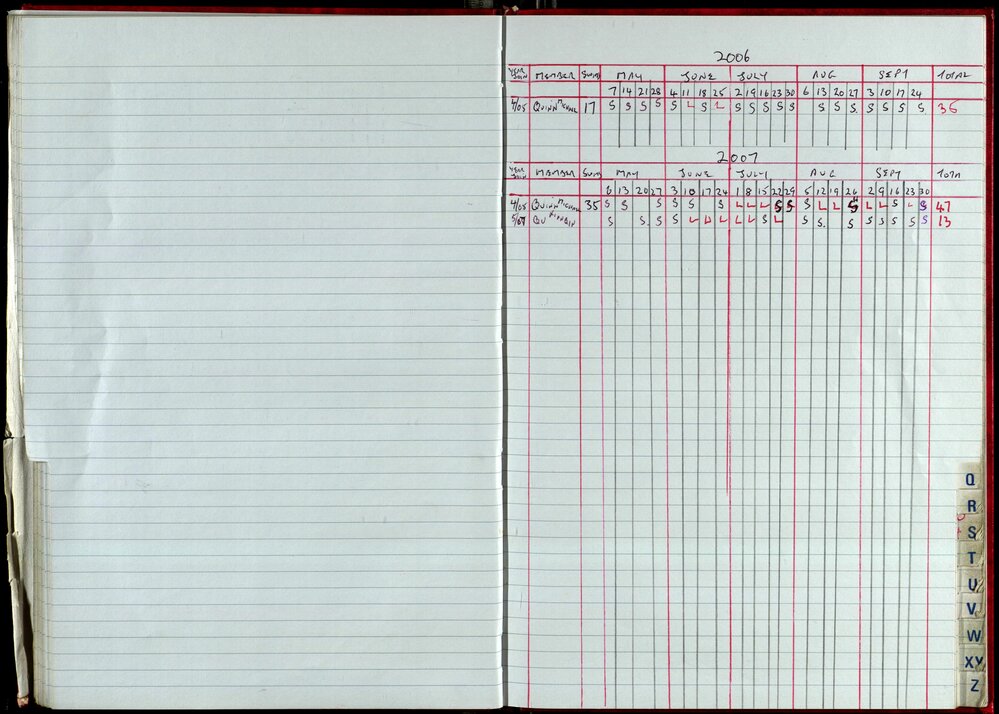 2006
YEAR JOIN MEMBER SWIMS MAY JUNE JULY AUG SEPT TOTAL
7 14 21 28 4 11 18 25 2 19 16 23 30 6 13 20 27 3 10 17 24
4/05 QUINN MICHAEL 17 S S S S S L S L S S S S S S S S S S S S 36
2007
YEAR JOIN MEMBER SWIMS MAY JUNE JULY AUG SEPT TOTA
6 13 20 27 3 10 17 24 1 8 15 22 29 5 12 19 26 2 9 16 23 30
4/05 QUINN MICHAEL 35 S S S S S S L L L S S S L L S L L S L S 47
5/07 S S S S L L L L L S L S S. S S S S S S 13
Q
R
S
T
U
V
W
XY
Z